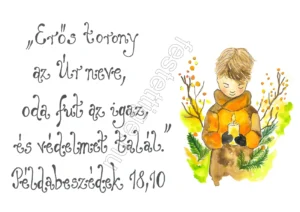 „Erős torony
az Úr neve,
oda fut az igaz,
és védelmet talál."
Példabeszédek 18,10